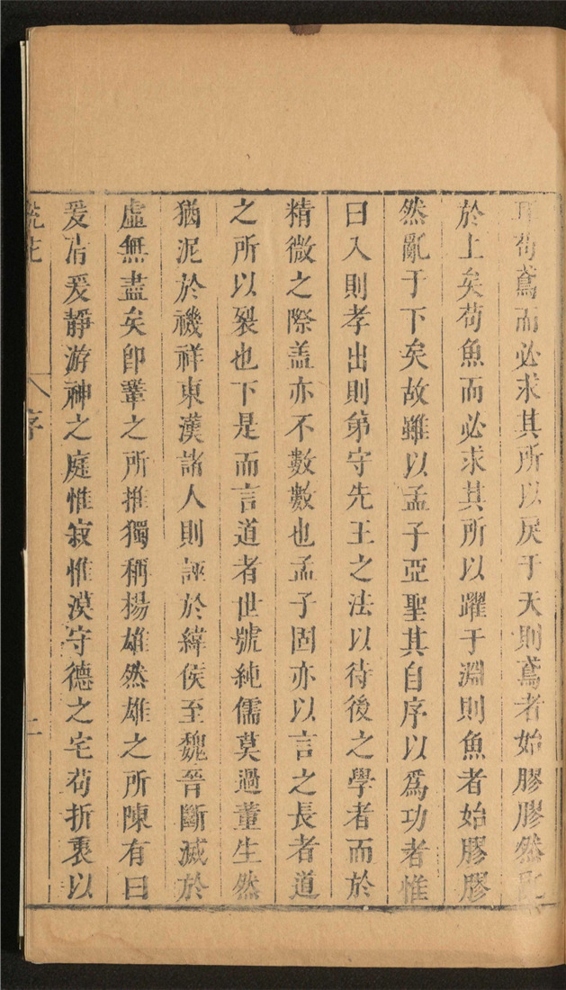 苟鳶而必求其所以戾于天則鳶者始膠膠然亂
於上矣苟魚而必求其所以躍于淵則魚者始膠膠
然亂于下矣故雖以孟子亞聖其自序以爲功者惟
曰入則孝出則第守先王之法以待後之學者而於
精微之際盖亦不數數也孟子固亦以言之長者道
之所以裂也下是而言道者世號純儒莫過董生然
猶泥於禨祥東漢諸人則誣於緯侯至魏晉斷滅於
虛無盡矣卽鞏之所推獨稱楊雄然雄之所陳有曰
爰清爰靜游神之庭惟寂惟漠守德之宅苟折衷以
序